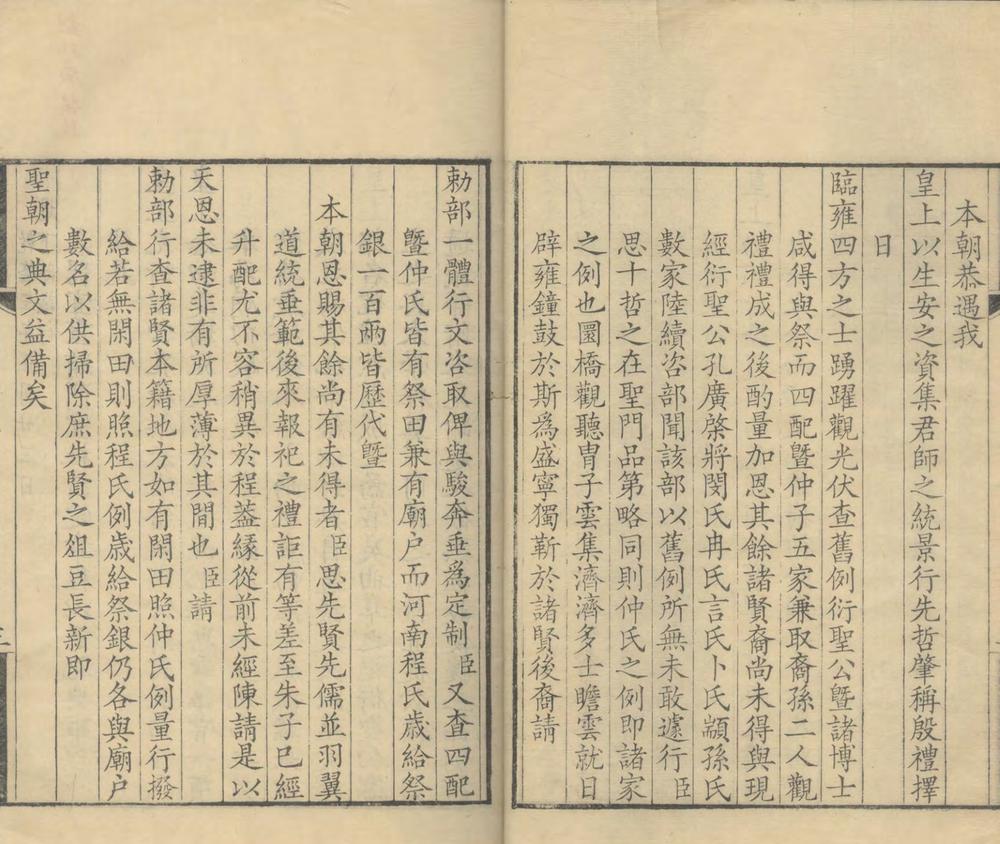 本朝恭遇我
皇上以生安之資集君師之統景行先哲肇稱殷禮擇
日
臨雍四方之士踴躍觀光伏查舊例衍聖公暨諸博士
咸得與祭而四配暨仲子五家兼取裔孫二人觀
禮禮成之後酌量加恩其餘諸賢裔尚未得與現
經衍聖公孔廣棨將閔氏冉氏言氏卜氏顓孫氏
數家陸續咨部聞該部以舊例所無未敢遽行臣
思十哲之在聖門品第略同則仲氏之例即諸家
之例也圜橋觀聽胄子雲集濟濟多士瞻雲就日
辟雍鐘鼓於斯爲盛寧獨靳於諸賢後裔請
勅部一體行文咨取俾與駿奔垂爲定制臣又查四配
暨仲氏皆有祭田兼有廟户而河南程氏歲給祭
銀一百兩皆歷代暨
本朝恩賜其餘尚有未得者臣思先賢先儒並羽翼
道統垂範後來報祀之禮詎有等差至朱子已經
升配尤不容稍異於程葢緣從前未經陳請是以
天恩未逮非有所厚薄於其間也臣請
勅部行查諸賢本籍地方如有閑田照仲氏例量行撥
給若無閑田則照程氏例歲給祭銀仍各與廟户
數名以供掃除庶先賢之俎豆長新即
聖朝之典文益備矣